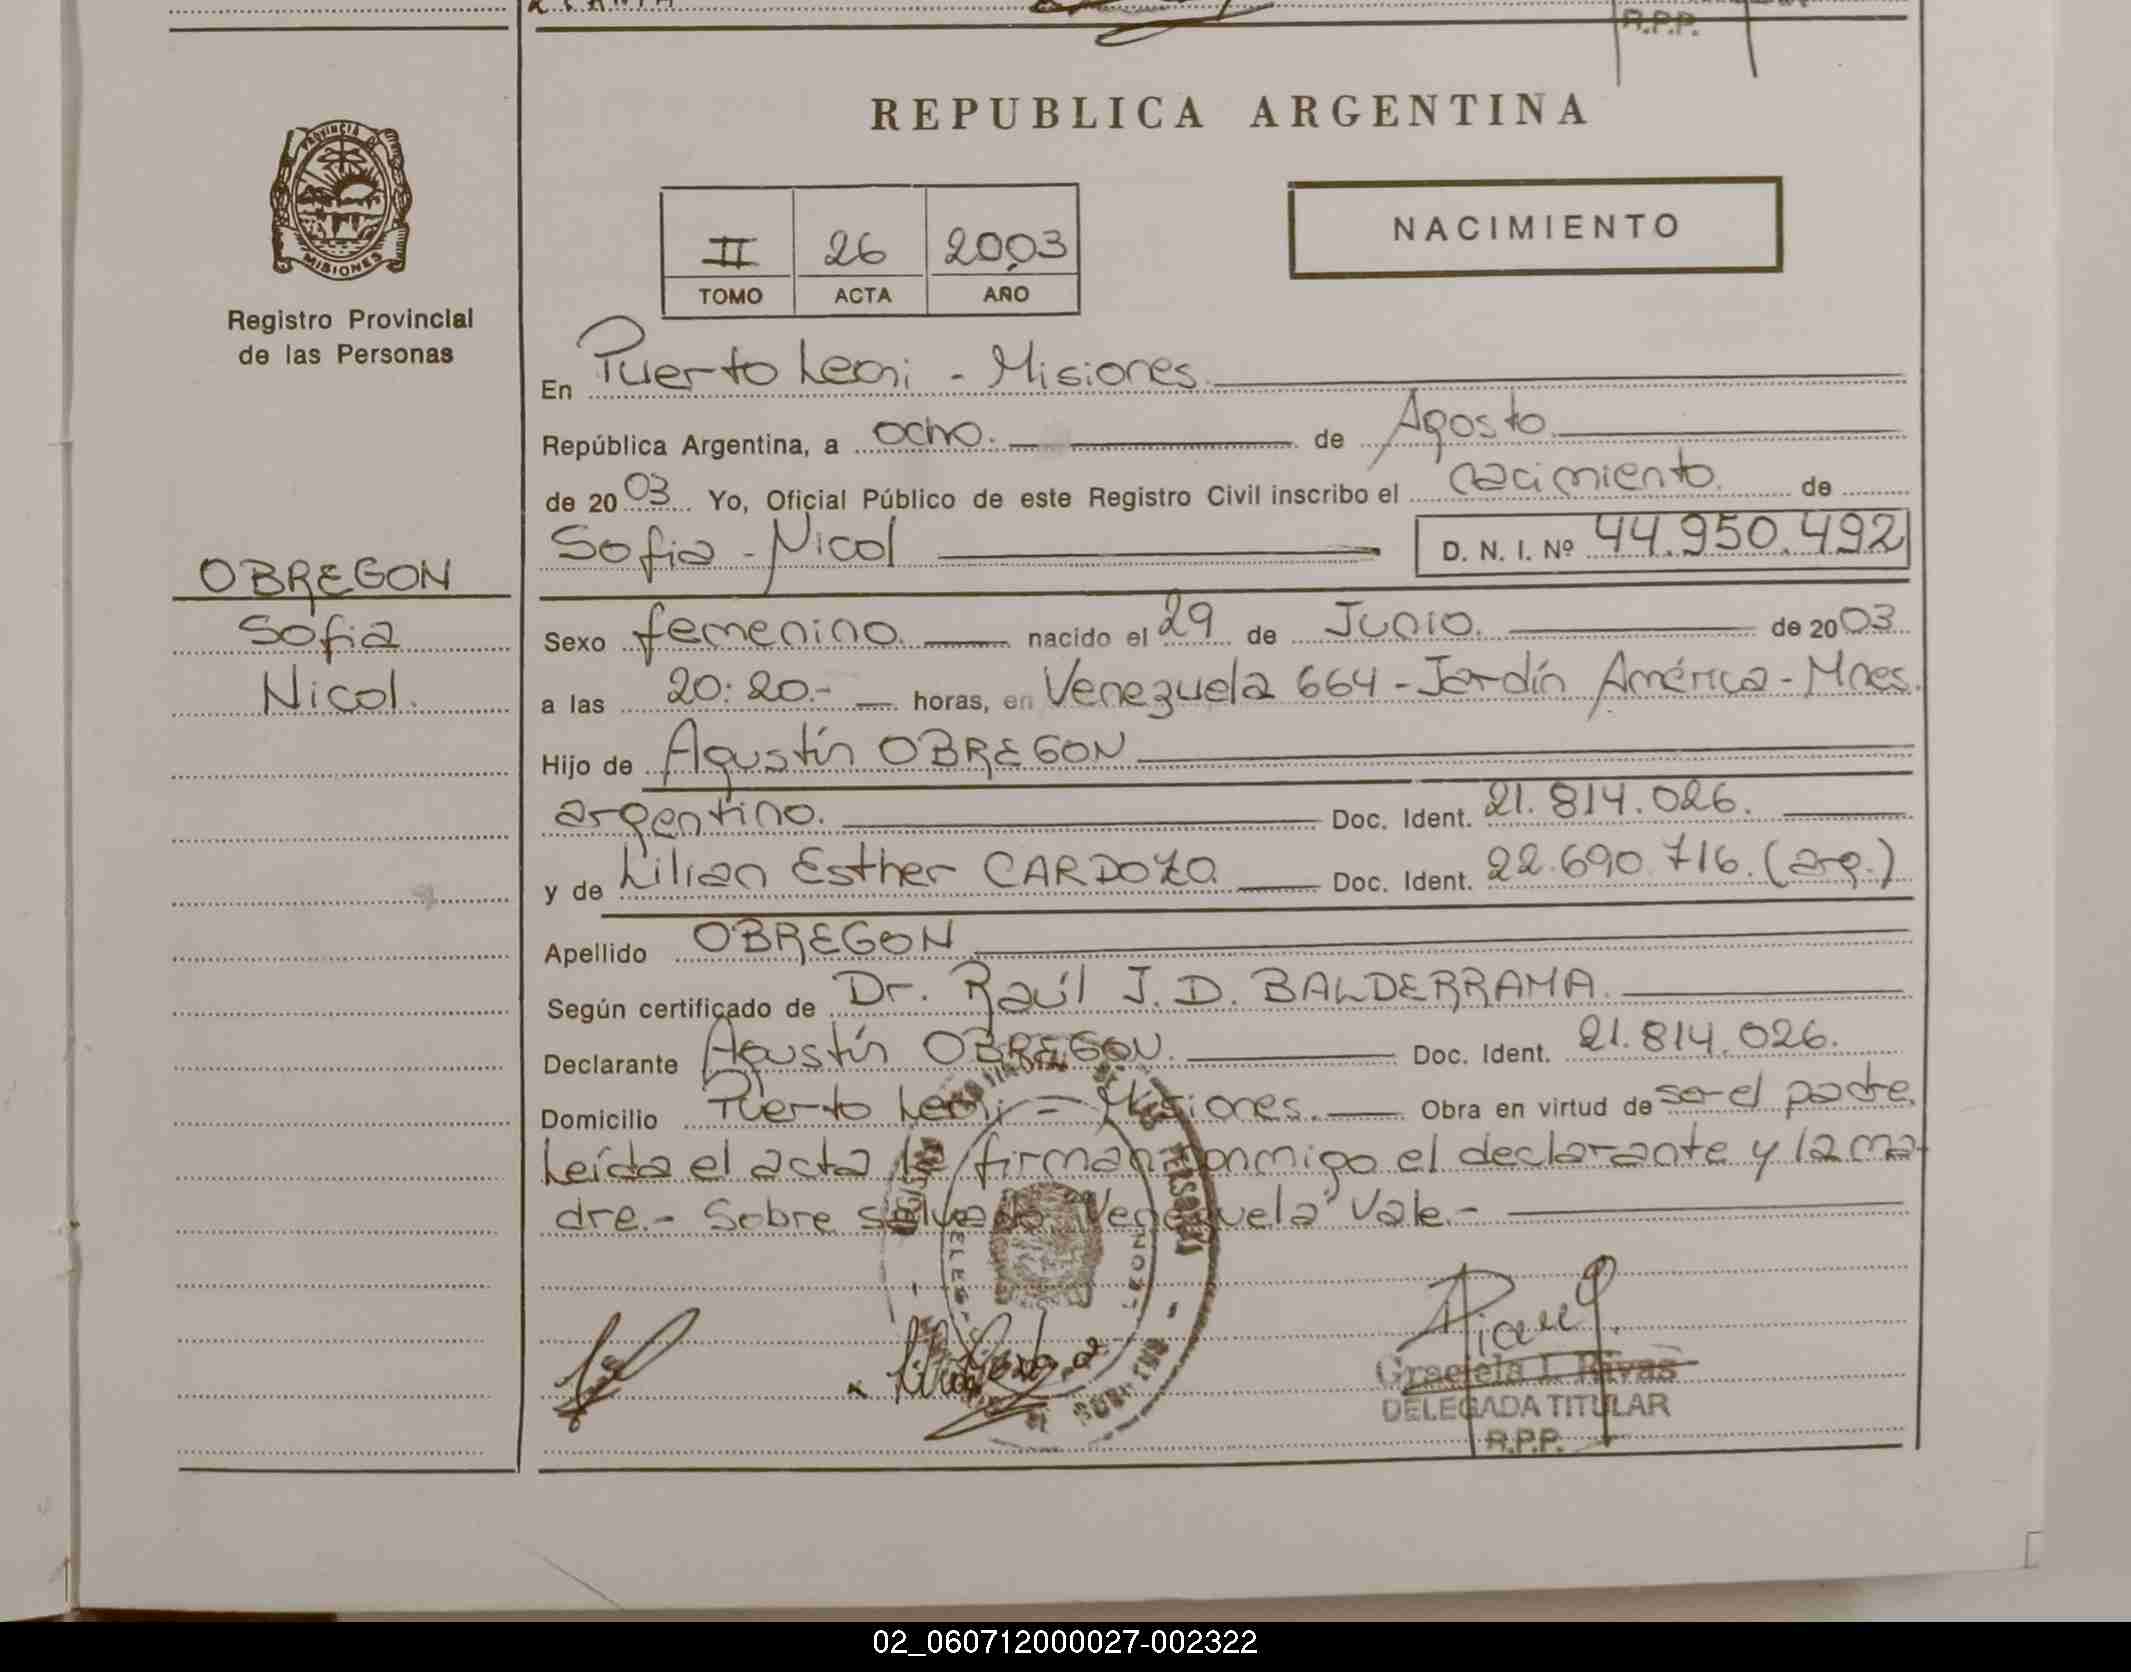 R.P.P.
PROVINCIA DE
MISIONES
Registro Provincial
de las Personas
OBREGON
Sofia
Nicol.
REPUBLICA ARGENTINA
II 26 2003
TOMO ACTA AÑO
NACIMIENTO
En Puerto Leoni - Misiones.
República Argentina, a ocho. de Agosto.
de 2003. Yo, Oficial Público de este Registro Civil inscribo el nacimiento. de
Sofia - Nicol D. N. I. Nº 44.950.492
Sexo femenino. nacido el 29 de Junio. de 2003
a las 20:20.- horas, en Venezuela 664 - Jardín América - Mnes.
Hijo de Agustín OBREGON
argentino. Doc. Ident. 21.814.026.
y de Lilian Esther CARDOZO. Doc. Ident. 22.690.716. (arg.)
Apellido OBREGON
Según certificado de Dr. Raúl J. D. BALDERRAMA.
Declarante Agustín OBREGON. Doc. Ident. 21.814.026.
Domicilio Puerto Leoni - Misiones. Obra en virtud de ser el padre.
Leída el acta la firman conmigo el declarante y la ma-
dre.- Sobre salvado "Venezuela" Vale.-
Graciela I. Rivas
DELEGADA TITULAR
R.P.P.
02_060712000027-002322